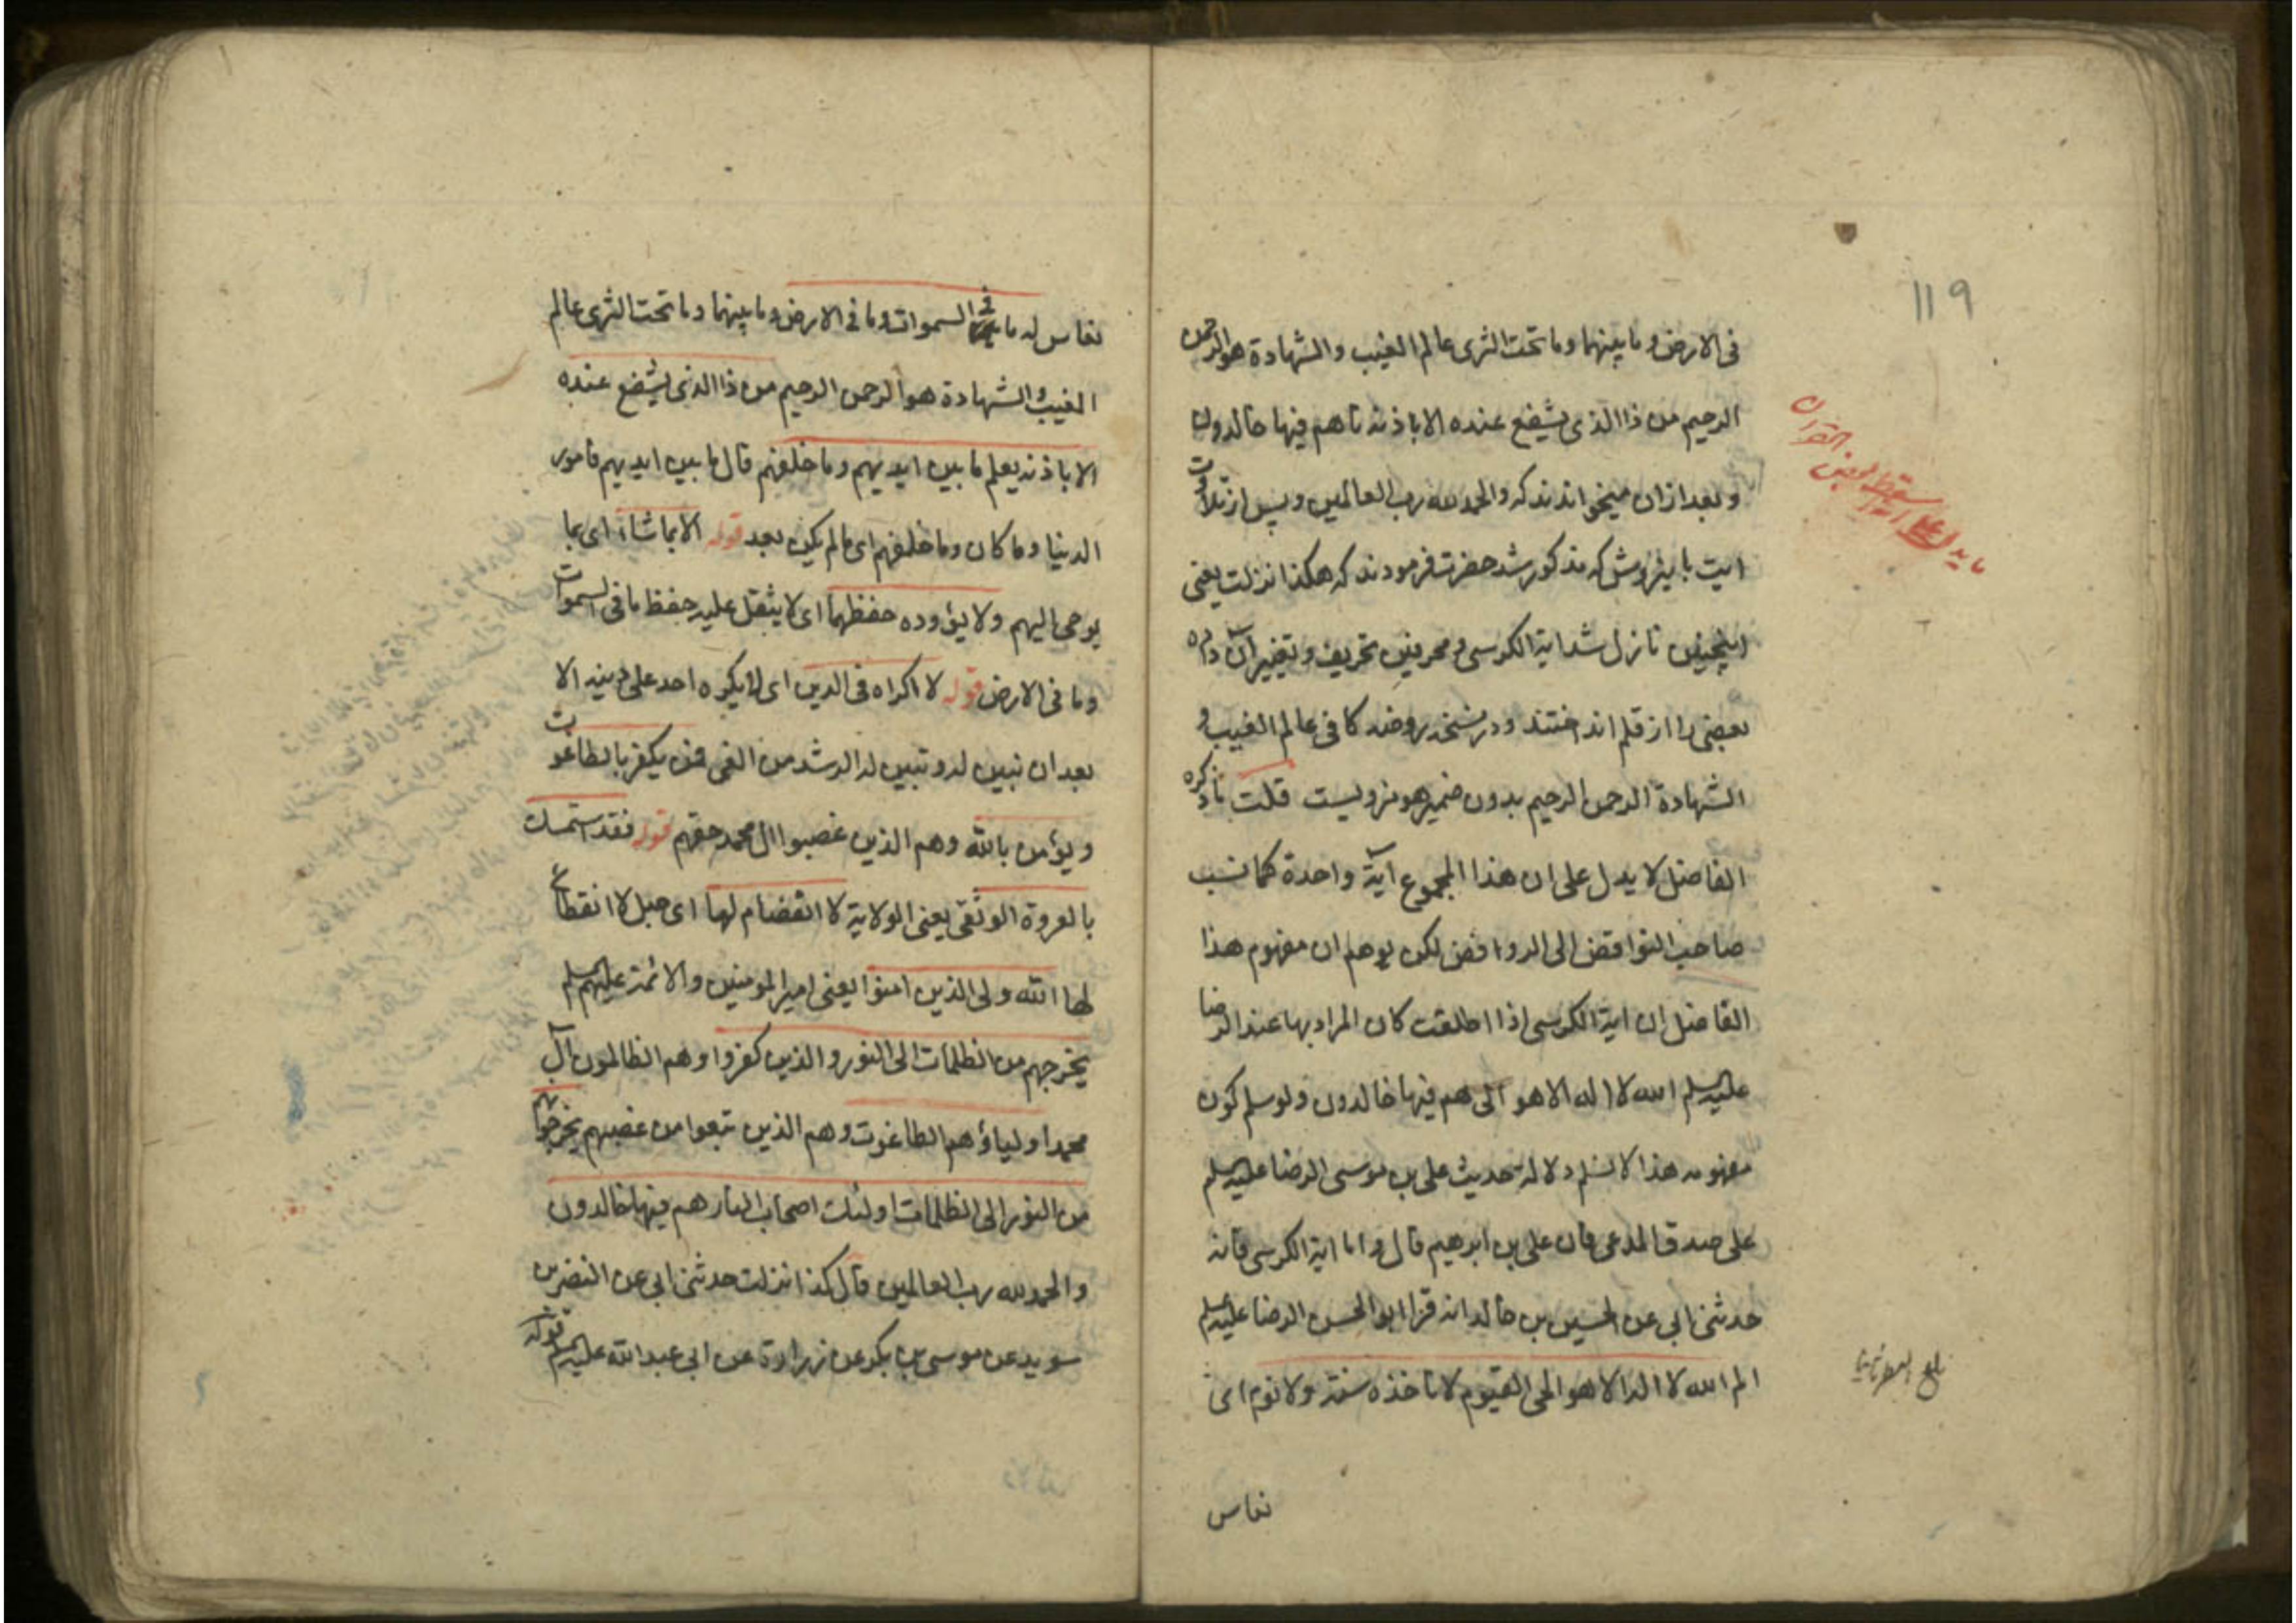 119
فی الارض و ما بینهما وما تحت الثری عالم الغیب والشهادة هو الرحمن
الرحیم من ذا الذی یشفع عنده الا باذنه تا هم فیها خالدون
و بعد ازان میخوانند که والحمد لله رب العالمین و پس از تلاوت
ایت باینروش که مذکور شد حضرت فرمودند که هکذا نزلت یعنی
اینچنین نازل شد ایة الکرسی و محرفین تحریف و تغییر آن داده
بعضی را از قلم انداختند و در نسخه روضه کافی عالم الغیب و
الشهادة الرحمن الرحیم بدون ضمیر هو مرویست قلت ما ذکره
الفاضل لا یدل علی ان هذا المجموع آیة واحدة کما نسب
صاحب النواقض الی الروافض لکن یوهم ان مفهوم هذا
الفاضل ان ایة الکرسی اذا اطلقت کان المراد بها عند الرضا
علیه السلم الله لا اله الا هو الی هم فیها خالدون ولو سلم کون
مفهومه هذا لا نسلم دلالة حدیث علی بن موسی الرضا علیه السلم
علی صدق المدعی فان علی بن ابرهیم قال و اما ایة الکرسی فانه
حدثنی ابی عن الحسین بن خالد انه قرا ابو الحسن الرضا علیه السلم
الم الله لا اله الا هو الحی القیوم لا تاخذه سنة ولا نوم ای
نعاس
ما یدل علی سقط بعض القران
بلغ
نعاس له ما فی السموات وما فی الارض وما بینهما وما تحت الثری عالم
الغیب والشهادة هو الرحمن الرحیم من ذا الذی یشفع عنده
الا باذنه یعلم ما بین ایدیهم وما خلفهم قال ما بین ایدیهم فامور
الدنیا وما کان وما خلفهم ای مالم یکن بعد قوله الا بما شاء ای بما
یوحی الیهم ولا یؤوده حفظهما ای لا یثقل علیه حفظ ما فی السموات
وما فی الارض قوله لا اکراه فی الدین ای لا یکره احد علی دینه الا
بعد ان تبین له و تبین له الرشد من الغی فمن یکفر بالطاغوت
و یؤمن بالله وهم الذین غصبوا ال محمد حقهم قوله فقد استمسک
بالعروة الوثقی یعنی الولایة لا انفصام لها ای حبل لا انقطاع
لها الله ولی الذین امنوا یعنی امیر المومنین والائمة علیهم السلم
یخرجهم من الظلمات الی النور والذین کفروا وهم الظالمون آل
محمد اولیاؤهم الطاغوت وهم الذین تبعوا من غصبهم یخرجونهم
من النور الی الظلمات اولئک اصحاب النار هم فیها خالدون
والحمد لله رب العالمین قال کذا نزلت حدثنی ابی عن النضر بن
سوید عن موسی بن بکر عن زرارة عن ابی عبد الله علیه السلم قوله